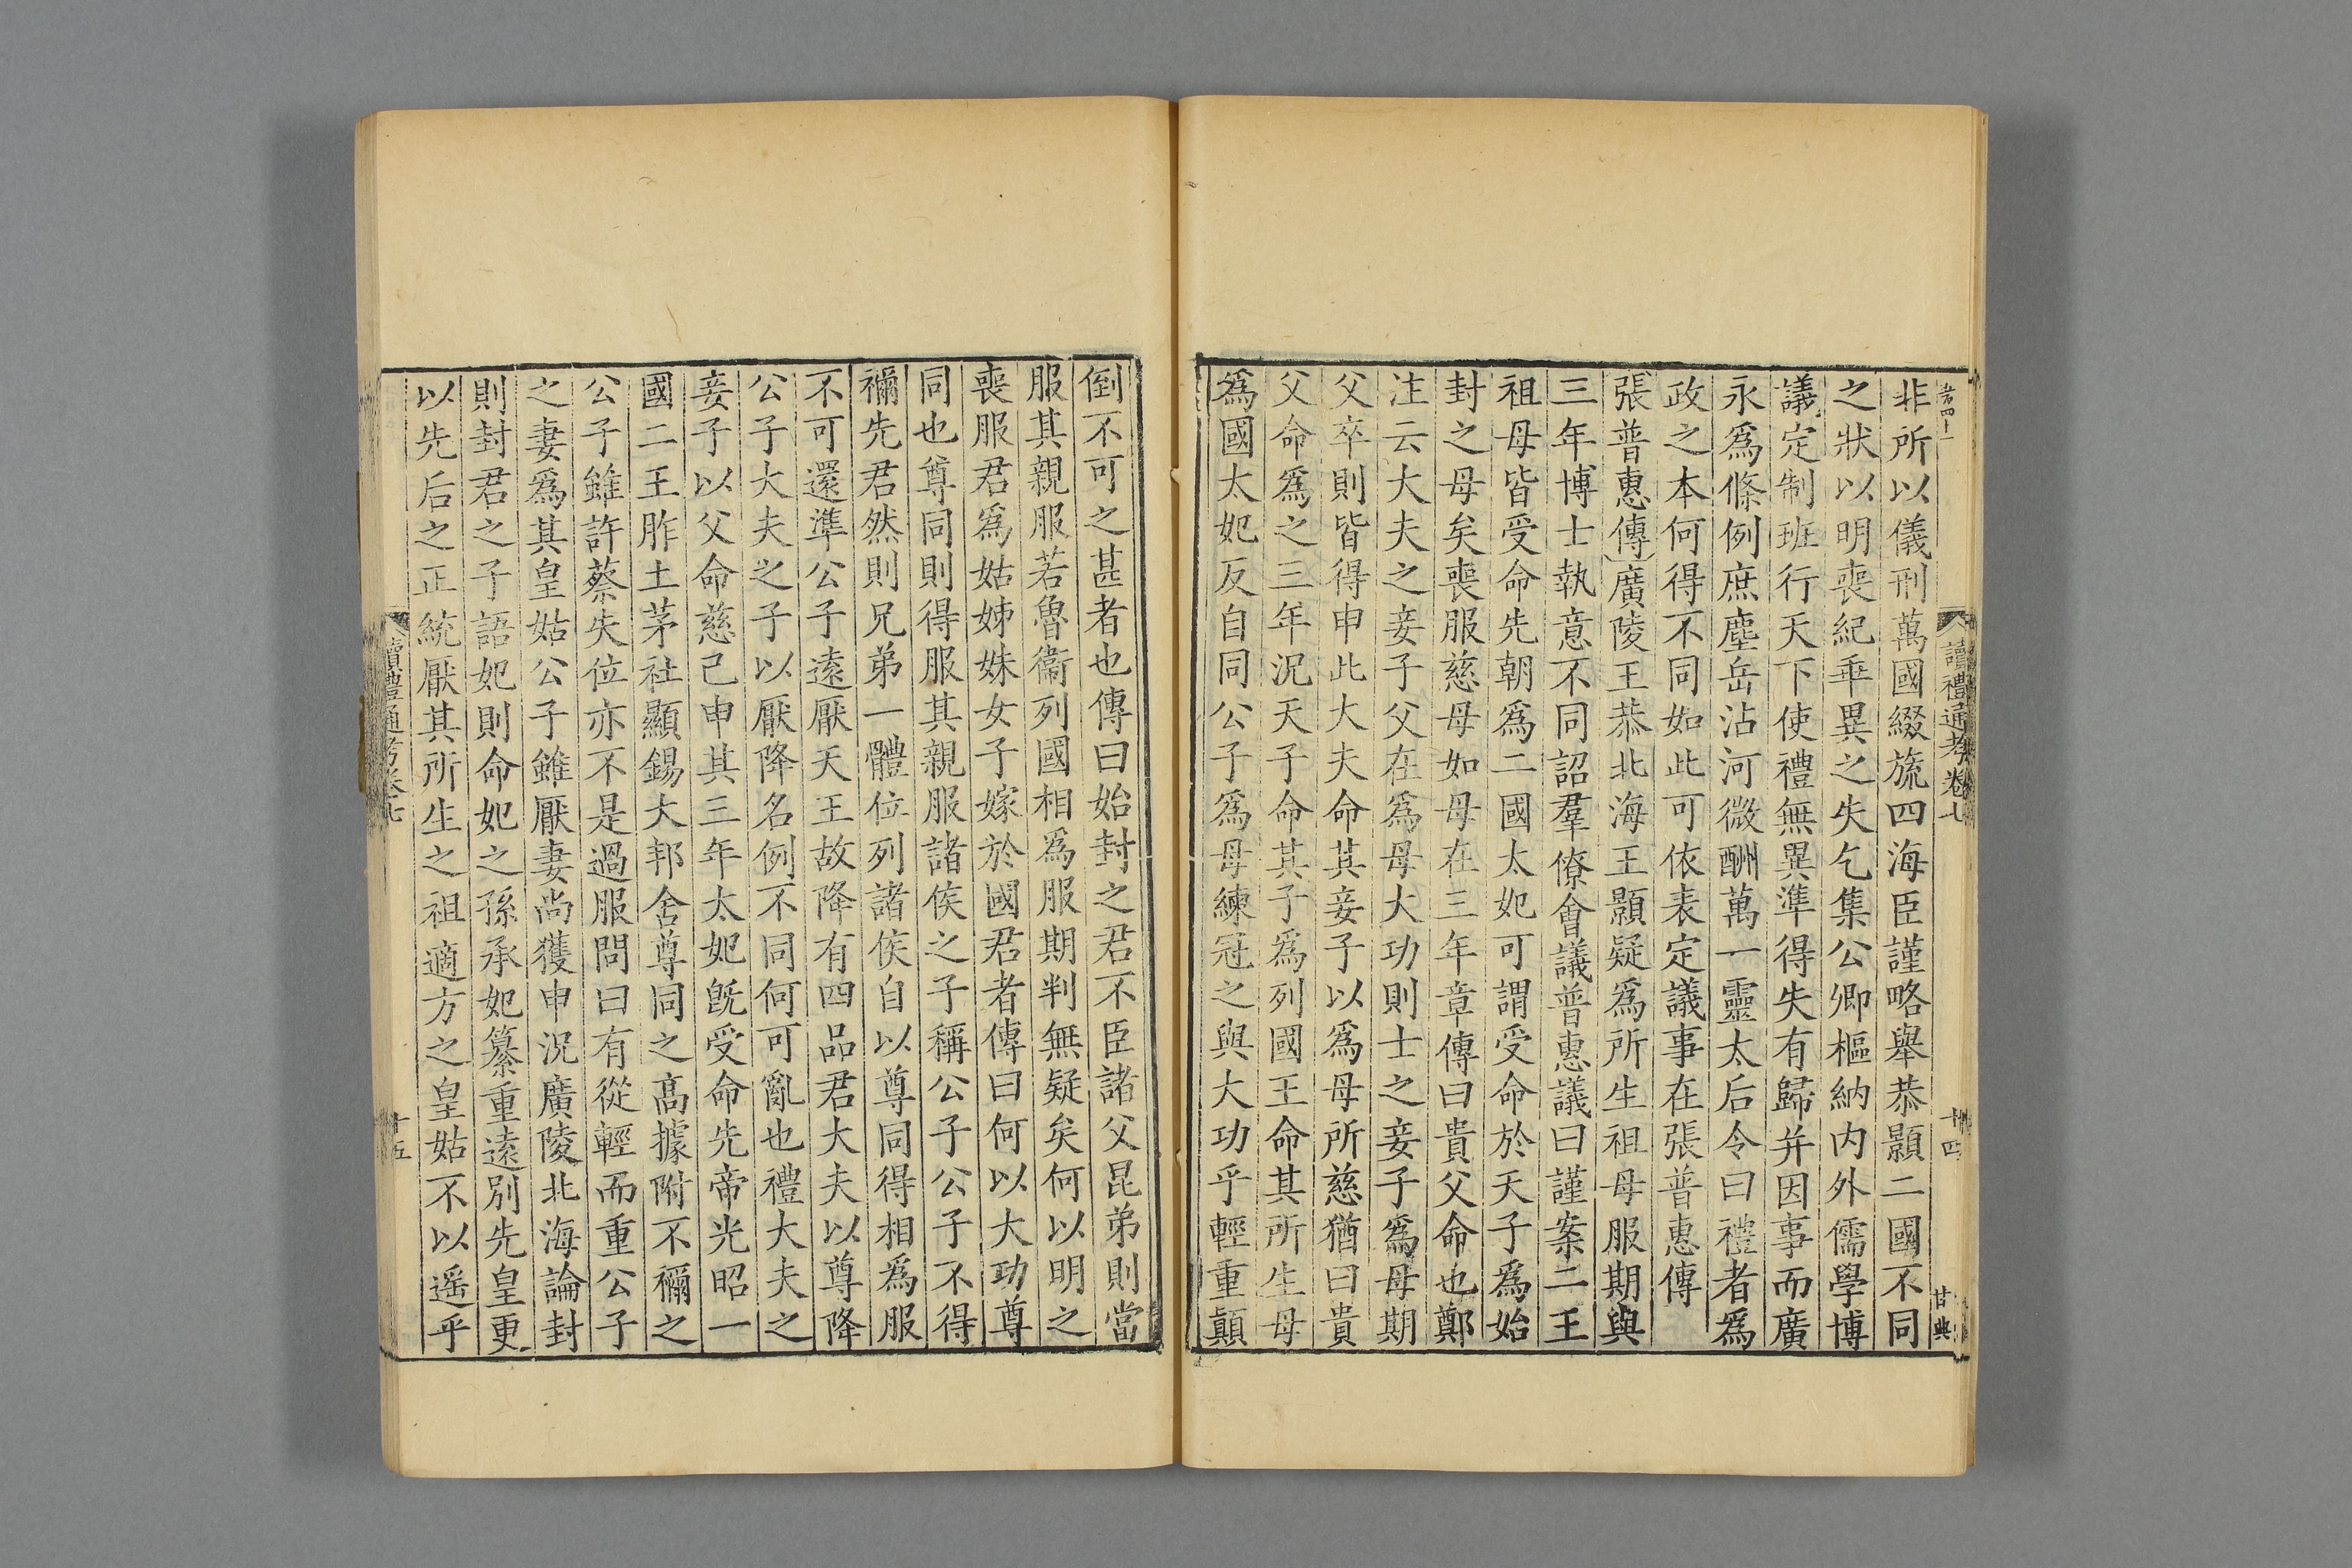 讀禮通考卷七
十四
甘典
非所以儀刑萬國綴旒四海臣謹略舉恭顥二國不同
之狀以明喪紀乖異之失乞集公卿樞納内外儒學博
議定制班行天下使禮無異準得失有歸并因事而廣
永爲條例庶塵岳沾河微酬萬一靈太后令曰禮者爲
政之本何得不同如此可依表定議事在張普惠傳
張普惠傳廣陵王恭北海王顥疑爲所生祖母服期與
三年博士執意不同詔羣僚會議普惠議曰謹案二王
祖母皆受命先朝爲二國太妃可謂受命於天子爲始
封之母矣喪服慈母如母在三年章傳曰貴父命也鄭
注云大夫之妾子父在爲母大功則士之妾子爲母期
父卒則皆得申此大夫命其妾子以爲母所慈猶曰貴
父命爲之三年況天子命其子爲列國王命其所生母
爲國太妃反自同公子爲母練冠之與大功乎輕重顛
倒不可之甚者也傳曰始封之君不臣諸父昆弟則當
服其親服若魯衞列國相爲服期判無疑矣何以明之
喪服君爲姑姊妹女子嫁於國君者傳曰何以大功尊
同也尊同則得服其親服諸侯之子稱公子公子不得
禰先君然則兄弟一體位列諸侯自以尊同得相爲服
不可還準公子遠厭天王故降有四品君大夫以尊降
公子大夫之子以厭降名例不同何可亂也禮大夫之
妾子以父命慈己申其三年太妃旣受命先帝光昭一
國二王胙土茅社顯錫大邦舍尊同之高據附不禰之
公子雖許蔡失位亦不是過服問曰有從輕而重公子
之妻爲其皇姑公子雖厭妻尚獲申況廣陵北海論封
則封君之子語妃則命妃之孫承妃纂重遠別先皇更
以先后之正統厭其所生之祖適方之皇姑不以遥乎
讀禮通考卷七
十五